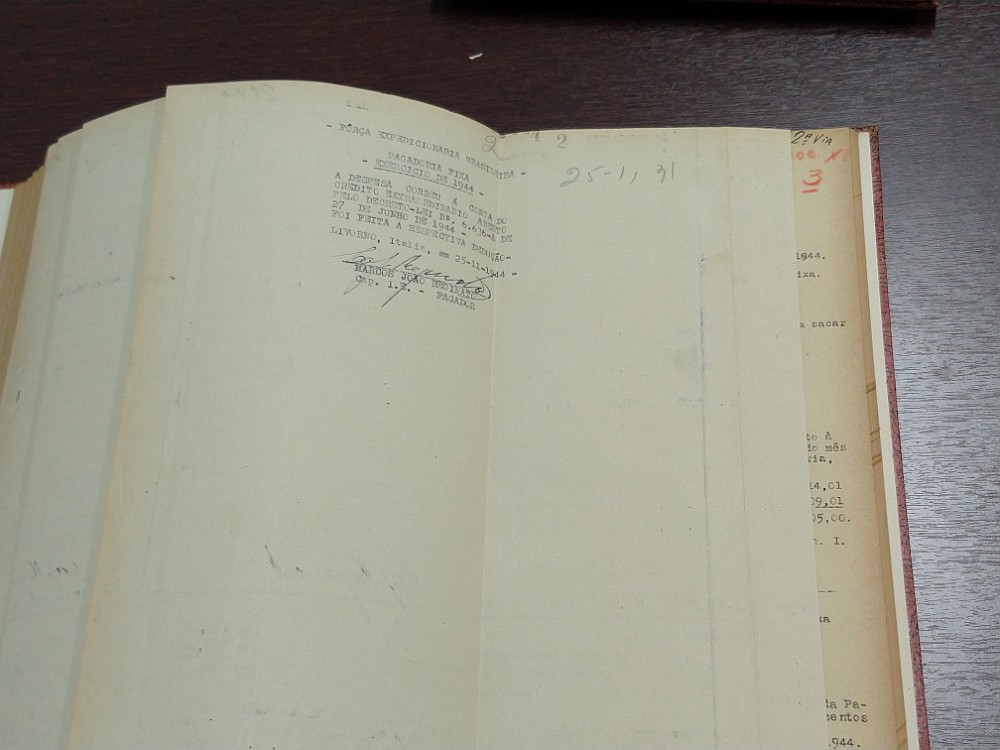 - FÔRÇA EXPEDICIONARIA BRASILEIRA -
PAGADORIA FIXA
- EXERCICIO DE 1944 -
A DESPESA CORREU A CONTA DO
CREDITO EXTRAORDINARIO ABERTO
PELO DECRETO-LEI Nº. 6.636-A DE
27 DE JUNHO DE 1944 -
FOI FEITA A RESPECTIVA DEDUÇÃO-
LIVORNO, Italia, em 25-11-1944 -
MARCOS JOÃO
Cap. I.E. - PAGADOR
25-1, 31
2ª Via
3
1944.
ixa.
a sacar
to à
do mês
ria,
14,01
09,01
05,00.
. I.
xa
da Pa-
mentos
1944.